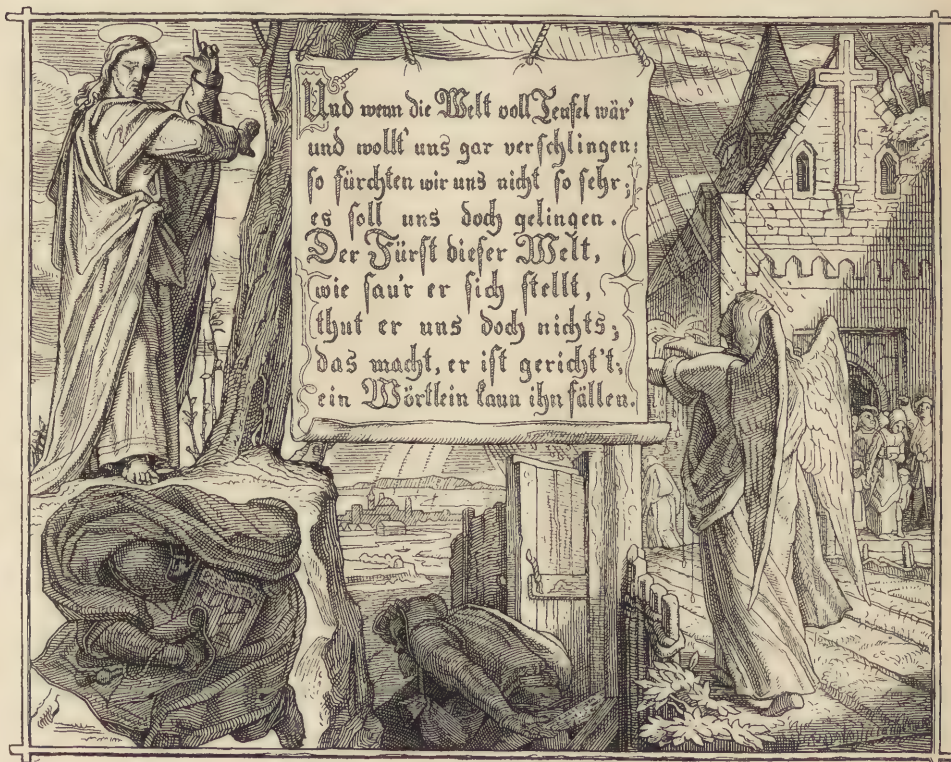 Und wenn die Welt voll Teufel wär'
und wollt' uns gar verschlingen:
so fürchten wir uns nicht so sehr,
es soll uns doch gelingen.
Der Fürst dieser Welt,
wie sau'r er sich stellt,
thut er uns doch nichts;
das macht, er ist gericht't;
ein Wörtlein kann ihn fällen.